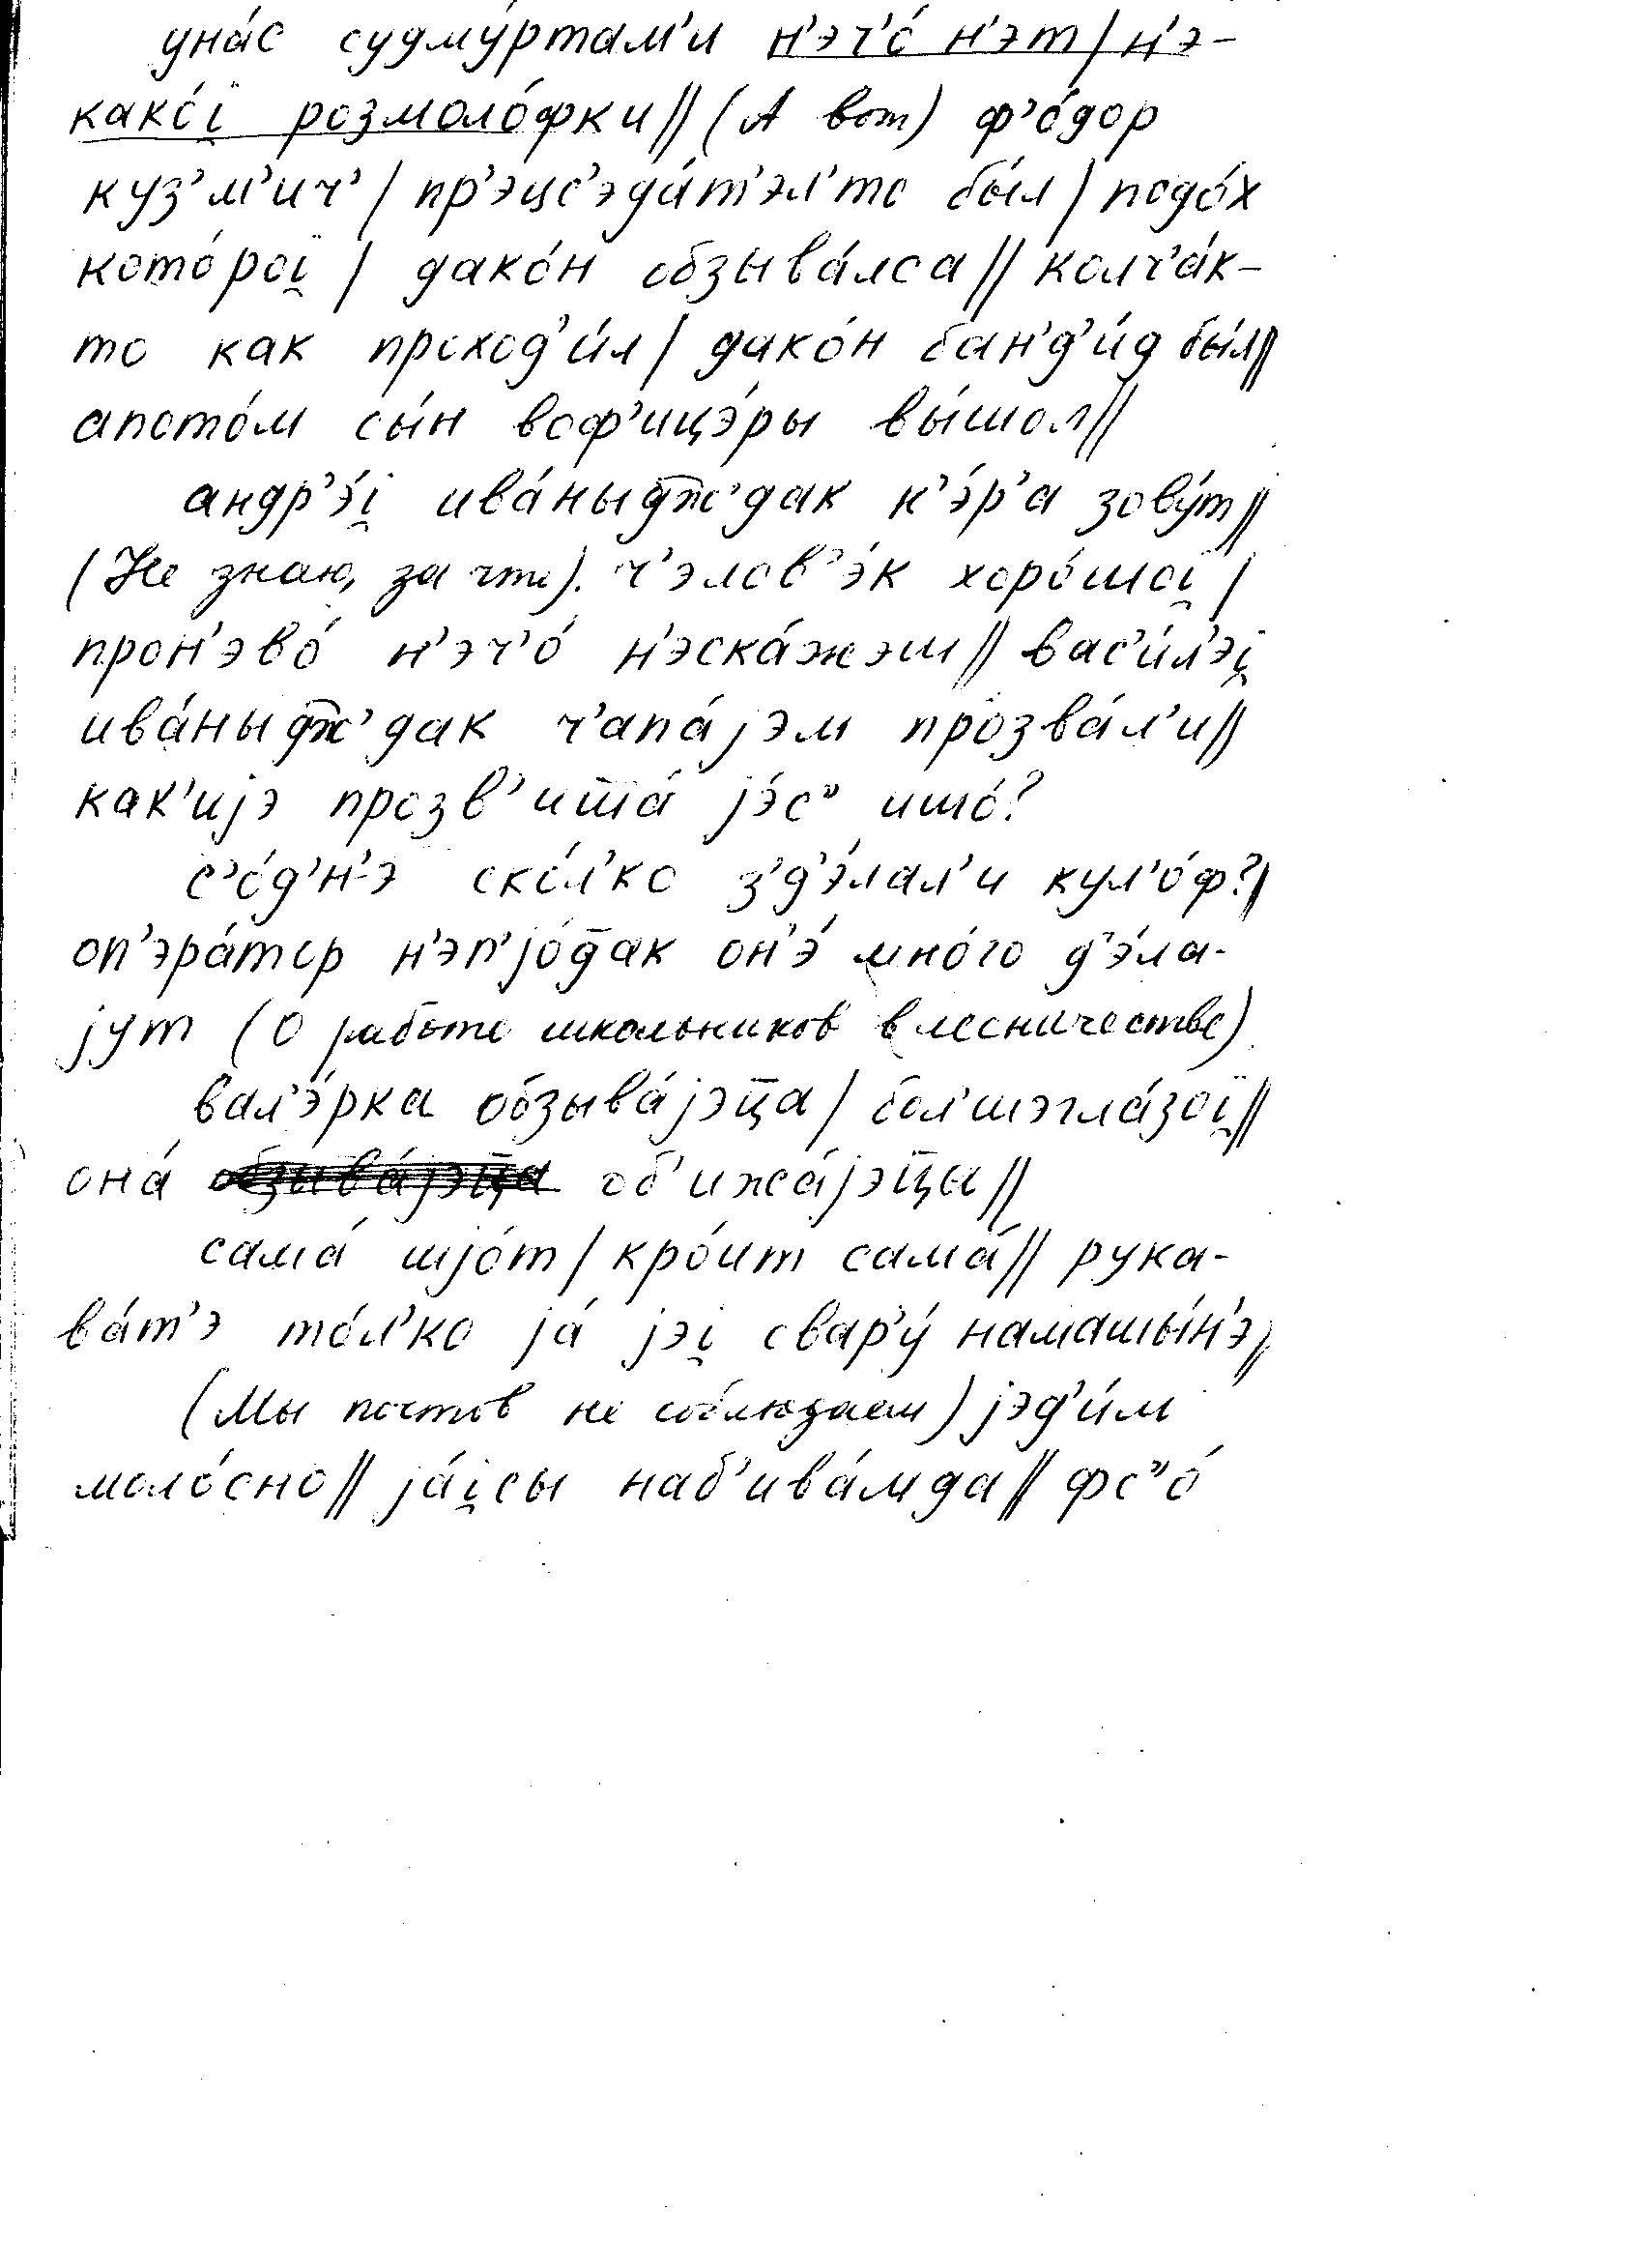 уна́с судму́ртам'и н'эч'о́ н'эт/н'э-
како́i̯ розмоло́фки// (А вот) ф'о́дор
куз'м'ич'/ пр'эцс'эда́т'эл'то бы́л/ подо́х
кото́роi̯ / дако́н обзыва́лса// колч'а́к-
то как проход'и́л/ дако́н бан'д'и́д бы́л//
апото́м сы́н воф'ицэ́ры вы́шол//
андр'э́i̯ ива́ныд͞ж'дак к'э́р'а зову́т//
(Не знаю, за что). ч'элов'э́к хоро́шоi̯ /
прон'эво́ н'эч'о́ н'эска́жэш// вас'и́л'эi̯
ива́ныд͞ж'дак ч'апа́jэм прозва́л'и//
как'иjэ прозв'иш̄а́ jэ́с" ишо́?
с'о́д'н'э ско́л'ко з'д'э́лал'и кул'о́ф?//
оп'эра́тор н'эп'jо́д̄ак он'э́ мно́го д'э́ла-
jут (О работе школьников в лесничестве)
вал'э́рка обзыва́jэц̄а/ бол'шэгла́зоi̯//
она́ об'ижа́jэц̄ы//
сама́ шjо́т/ кро́ит сама́// рука-
ва́т'э то́л'ко jа́ jэi̯ свар'у́ намашы́н'э//
(Мы постов не соблюдаем) jэд'и́м
моло́сно// jа́i̯сы наб'ива́мда// фс"о́